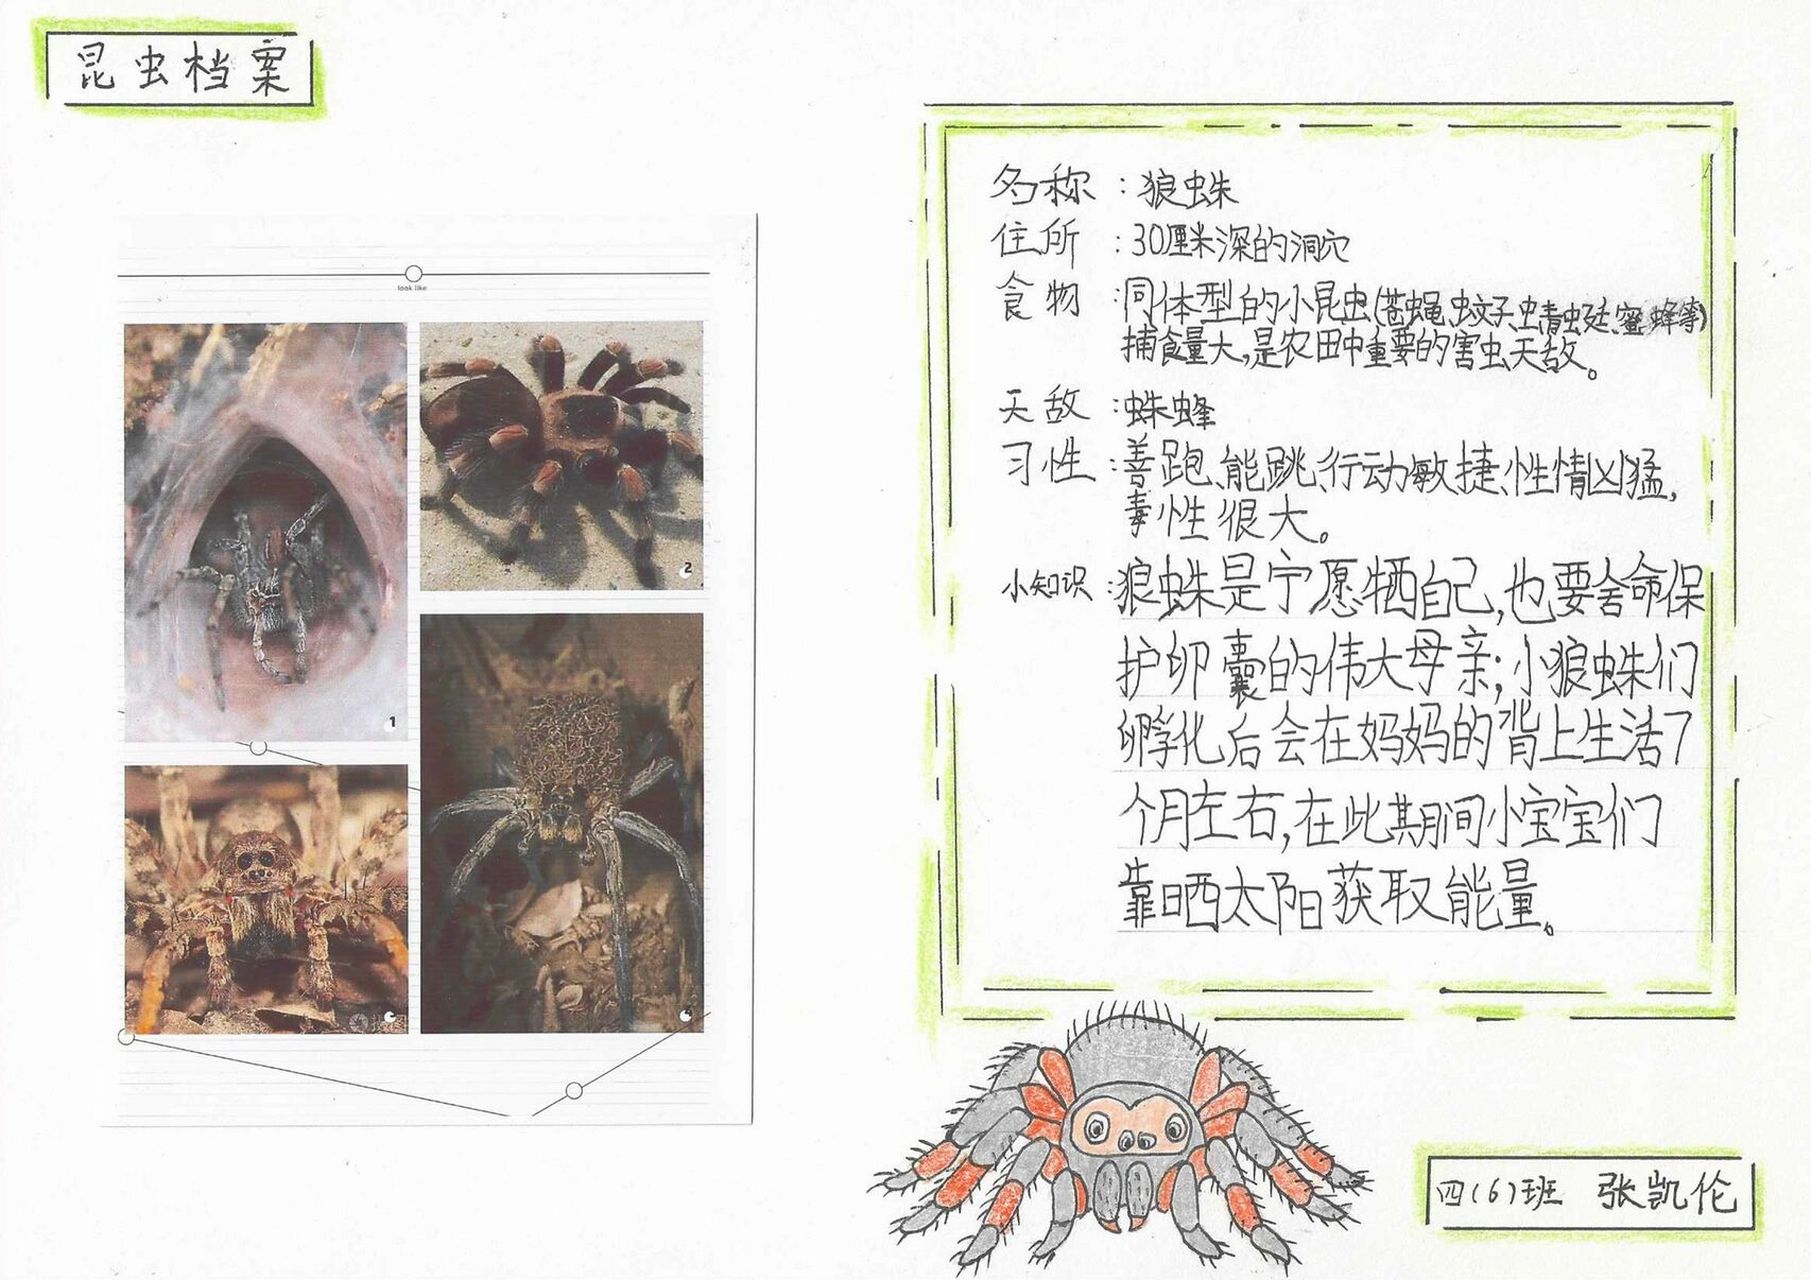 昆虫档案
look like
1
2
名称：狼蛛
住所：30厘米深的洞穴
食物：同体型的小昆虫(苍蝇、蚊子、蜻蜓、蜜蜂等)
捕食量大,是农田中重要的害虫天敌。
天敌：蛛蜂
习性：善跑、能跳、行动敏捷、性情凶猛,
毒性很大。
小知识：狼蛛是宁愿牺牲自己,也要舍命保
护卵囊的伟大母亲;小狼蛛们
孵化后会在妈妈的背上生活7
个月左右,在此期间小宝宝们
靠晒太阳获取能量。
四(6)班 张凯伦